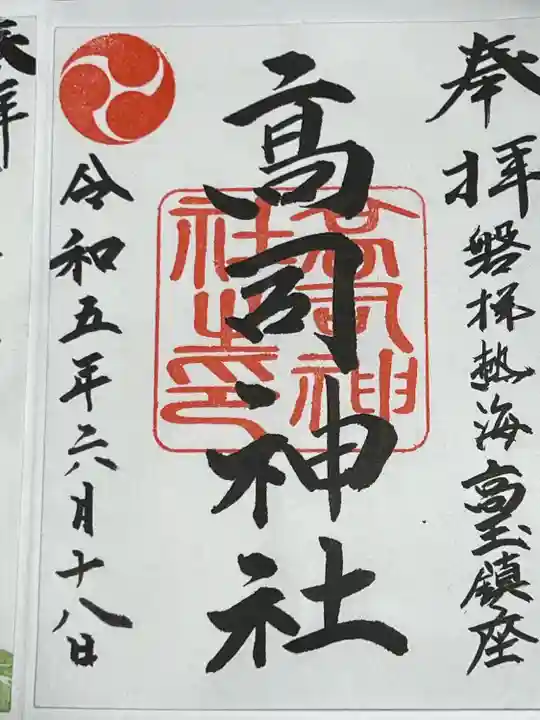 奉拝
磐梯熱海高玉鎮座
高司神社
高司神社之印
令和五年六月十八日
拝